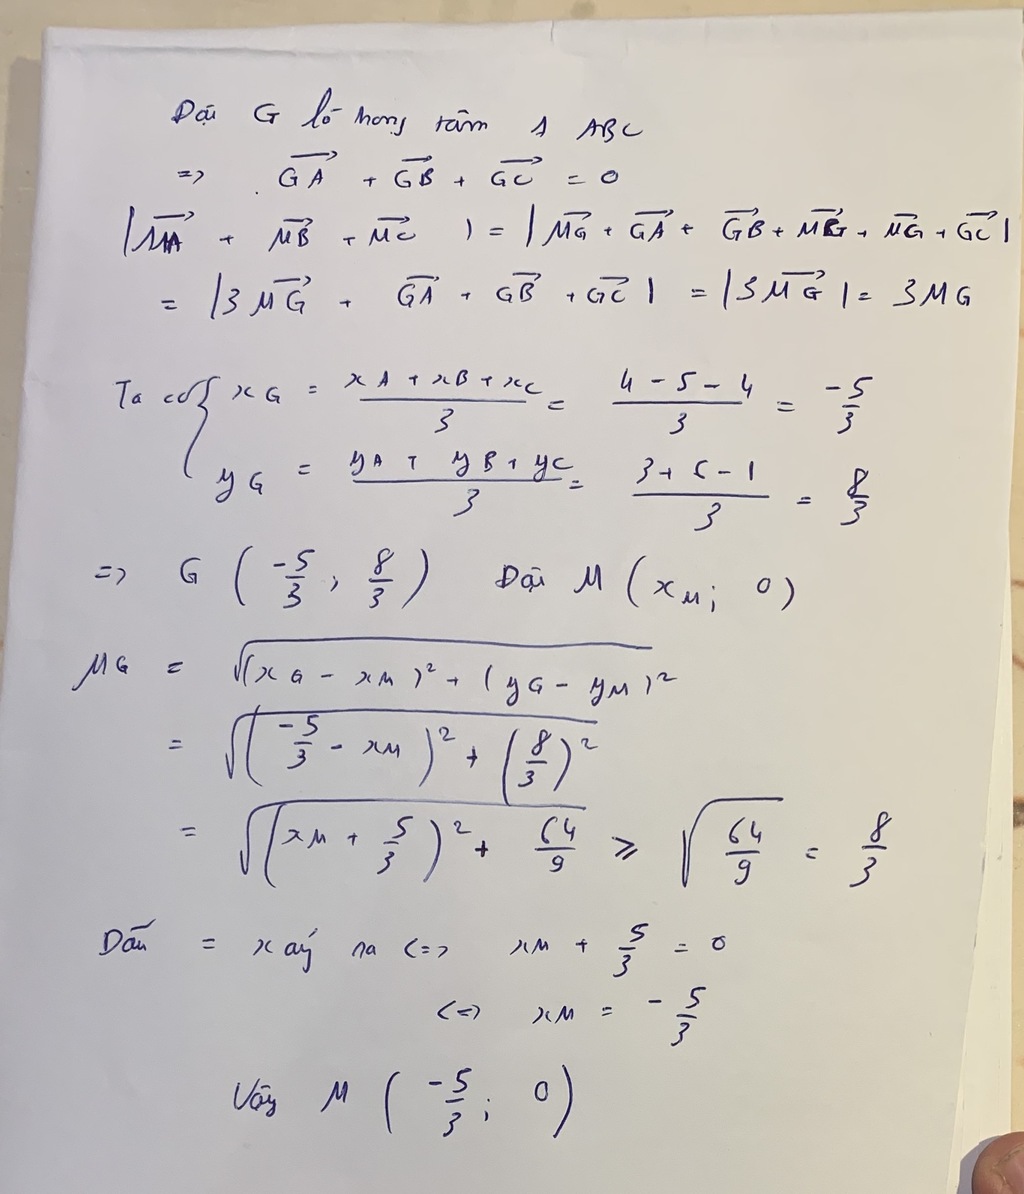 Đặt G là trọng tâm Δ ABC
=> GA + GB + GC = 0
|MA + MB + MC | = | MG + GA + GB + MG + MG + GC |
= |3 MG + GA + GB + GC | = |3 MG | = 3MG
Ta có { xG = (xA + xB + xC)/3 = (4 - 5 - 4)/3 = -5/3
yG = (yA + yB + yC)/3 = (3 + 6 - 1)/3 = 8/3
=> G (-5/3, 8/3) Đặt M (xM; 0)
MG = √((xG - xM)² + (yG - yM)²
= √((-5/3 - xM)² + (8/3)²
= √((xM + 5/3)² + 64/9 ⩾ √(64/9) = 8/3
Dấu = xảy ra <=> xM + 5/3 = 0
<=> xM = - 5/3
Vậy M (-5/3; 0)